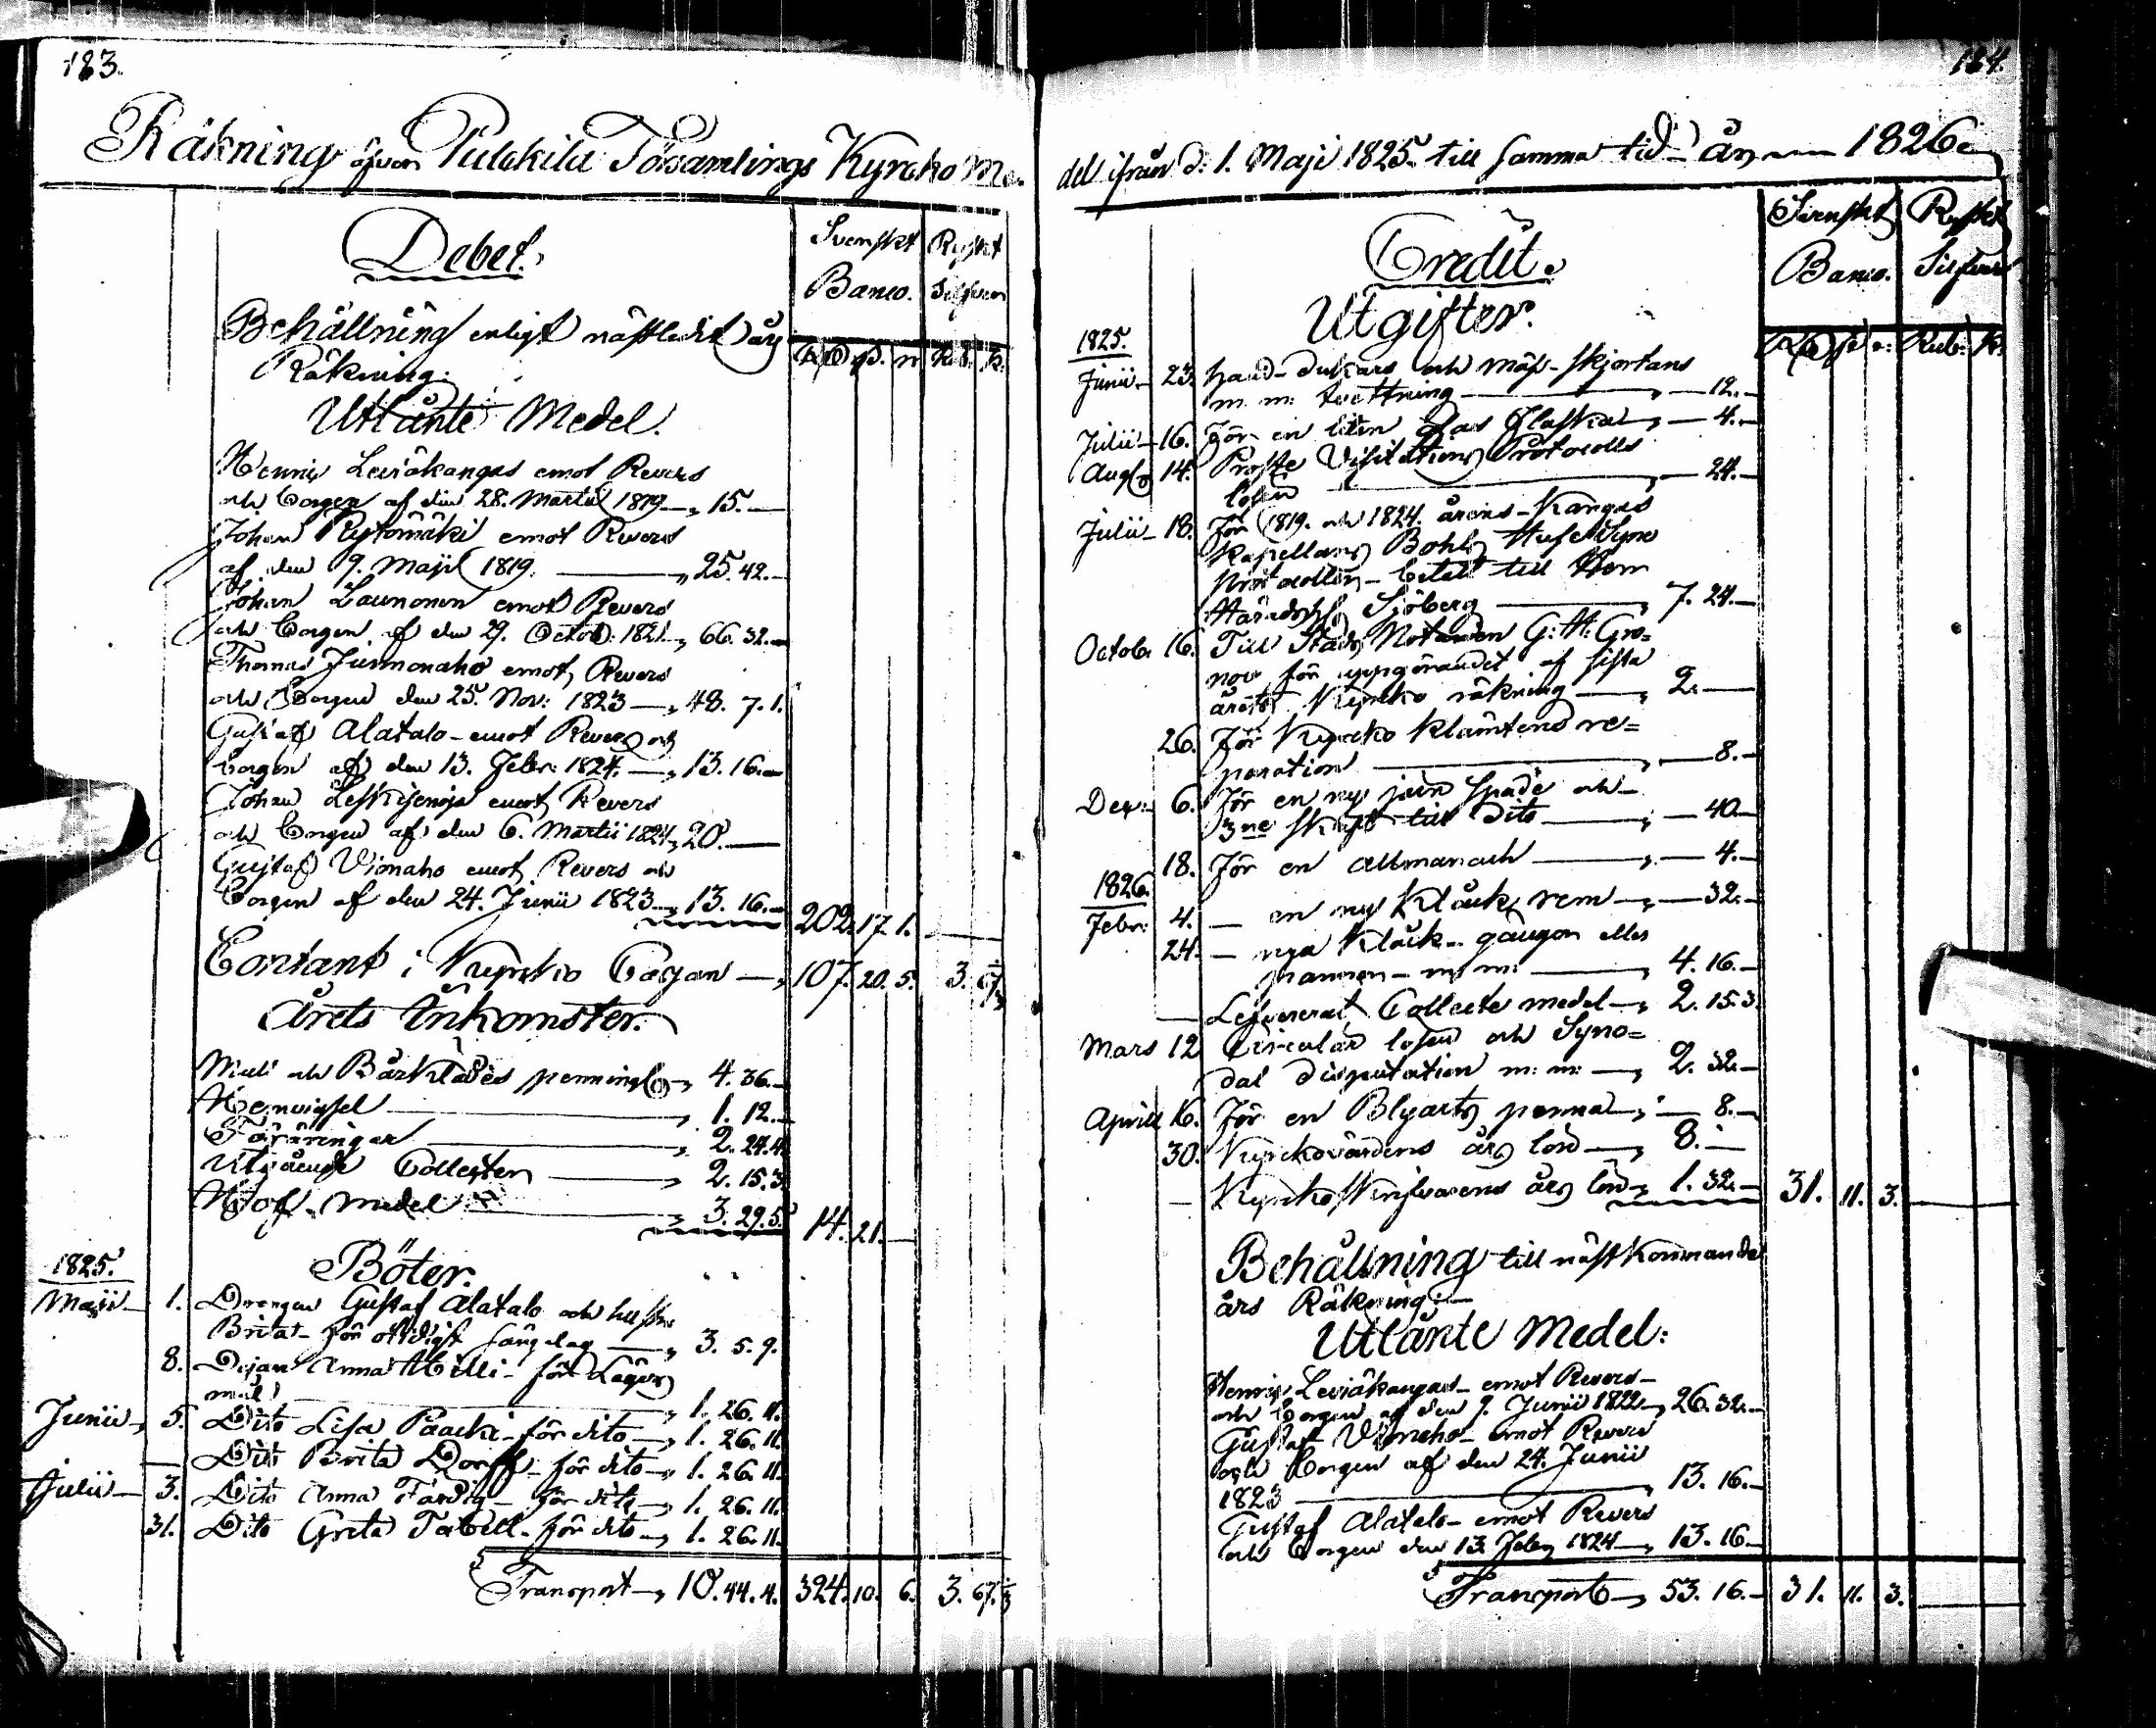 183.
Räkning öfver Pulckila Församlings Kyrcko Me-
Debet.
Svenskt Banco.
Ryskt Silfver
Behållning enligt nästledit års
Räkning:
Utlånte Medel.
Henric Leviäkangas emot Revers
och borgen af den 28. Martii 1819 —„ 15. —
Johan Rytömäki emot Revers
af den 9. Maji 1819. —„ 25. 42. —
Johan Launonen emot Revers
och borgen af den 29. Octob: 1821 —„ 66. 32. —
Thomas Jurmonaho emot Revers
och Borgen den 25. Nov: 1823 —„ 48. 7. 1.
Gustaf Alatalo - emot Revers och
borgen af den 13. Febr: 1824. —„ 13. 16. —
Johan Leskisenoja emot Revers
och borgen af den 6. Martii 1824 „ 20. —
Gustaf Vionaho emot Revers och
borgen af den 24. Junii 1823 —„ 13. 16. — 202. 17. 1. —
Contant i Kyrcko Cassan —„ 107. 20. 5. 3. 67 1/3
Årets Inkomster.
Mull och Bårklädes penningar —„ 4. 36. —
—„ 1. 12. —
Föräringar —„ 2. 24. 4.
Utgående Collecter —„ 2. 15. 3.
Håf-medel —„ 3. 29. 5. 14. 21. —
1825.
Böter.
Maji — 1. Drengen Gustaf Alatalo och hustru
Brita - för otidigt sängelag —„ 3. 5. 9.
8. Pigan Anna Hilli - för Lägers
mål —„ 1. 26. 11.
Junii — 5. Dito Lisa Paacki - för dito —„ 1. 26. 11.
— Dito Brita - för dito —„ 1. 26. 11.
Julii — 3. Dito Anna Färdig - för dito —„ 1. 26. 11.
31. Dito Greta Tabell - för dito —„ 1. 26. 11.
Transport —„ 10. 44. 4. 324. 10. 6. 3. 67 1/3
184.
del ifrån d: 1. Maji 1825 till samma tid - år — 1826.
Credit.
Svenskt Banco.
Ryskt Silfver
Rub: K.
Utgifter.
1825.
Junii — 23. hand-dukars och mäss-skjortans
m. m. tvettning —„ — 12. —
Julii — 16. För en liten glas flaska —„ — 4. —
Aug: 14. Prosts Visitations Protocolls
lösen —„ — 24. —
Julii — 18. För 1819. och 1824. årens - Kangas
Kapellans Bohls Huse Syns
protocoller - betalt till Herr
Häradshöfd. Sjöberg —„ 7. 24. —
Octob. 16. Till Stads Notarien G: H: Gro=
now för uppgörandet af sista
årets Kyrcko räkning —„ 2. —
26. För Kyrcko Klämtens re=
paration —„ — 8. —
Dec: 6. För en ny järn spade och
3ne skaft till dito —„ — 40. —
18. För en allmanach —„ — 4. —
1826.
Febr: 4. — en ny Klåck rem —„ — 32. —
24. — nya Klåck-gången eller
pannen - m: m: —„ 4. 16. —
— Lefvererat Collecte medel —„ 2. 15. 3.
Mars 12. Circulär lösen och Syno=
dal disputation m: m: —„ 2. 32. —
April 16. För en Blyarts penna —„ — 8. —
30. Kyrckovärdens års lön —„ 8. —
— Kyrcko Skrifvarens års lön „ 1. 32. — 31. 11. 3. —
Behållning till nästkommande
års Räkning: —
Utlånte Medel:
Henric Leviäkangas - emot Revers -
och borgen af den 9. Junii 1822 —„ 26. 32. —
Gustaf Vionaho - emot Revers
och borgen af den 24. Junii
1823 —„ 13. 16. —
Gustaf Alatalo - emot Revers
och borgen den 13. Febr: 1824 —„ 13. 16. —
Transport —„ 53. 16. — 31. 11. 3. —